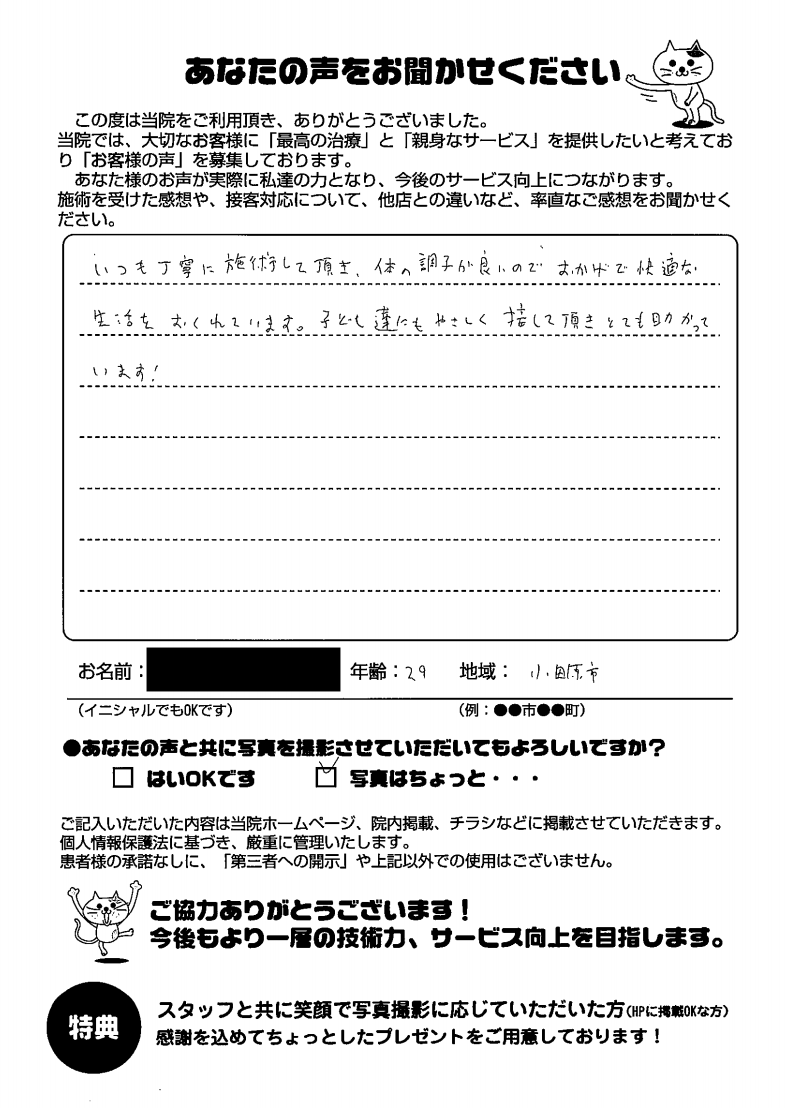 あなたの声をお聞かせください
この度は当院をご利用頂き、ありがとうございました。
当院では、大切なお客様に「最高の治療」と「親身なサービス」を提供したいと考えてお
り「お客様の声」を募集しております。
あなた様のお声が実際に私達の力となり、今後のサービス向上につながります。
施術を受けた感想や、接客対応について、他店との違いなど、率直なご感想をお聞かせく
ださい。
いつも丁寧に施術して頂き、体の調子が良いので おかげで快適な
生活を おくれています。子ども達にもやさしく 接して頂きとても助かって
います!
お名前： 年齢：29 地域： 小田原市
（イニシャルでもOKです） （例：●●市●●町）
●あなたの声と共に写真を撮影させていただいてもよろしいですか？
□ はいOKです ☑ 写真はちょっと・・・
ご記入いただいた内容は当院ホームページ、院内掲載、チラシなどに掲載させていただきます。
個人情報保護法に基づき、厳重に管理いたします。
患者様の承諾なしに、「第三者への開示」や上記以外での使用はございません。
ご協力ありがとうございます！
今後もより一層の技術力、サービス向上を目指します。
特典
スタッフと共に笑顔で写真撮影に応じていただいた方（HPに掲載OKな方）
感謝を込めてちょっとしたプレゼントをご用意しております！